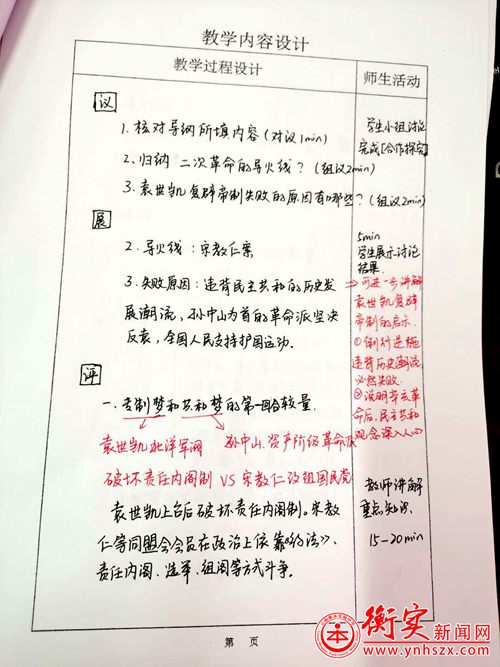 教学内容设计
教学过程设计
师生活动
议
1. 核对导纲所填内容(对议1min)
2. 归纳二次革命的导火线?(组议2min)
3. 袁世凯复辟帝制失败的原因有哪些?(组议2min)
学生小组讨论
完成[合作探究]
展
2. 导火线:宋教仁案
3. 失败原因:违背民主共和的历史发
展潮流,孙中山为首的革命派坚决
反袁,全国人民支持护国运动.
5min
学生展示讨论
结果.
⇒可进一步讲解
袁世凯复辟
帝制的启示.
①倒行逆施
违背历史潮流,
必然失败.
②说明辛亥革
命后,民主共和
观念深入人心
评
一、专制梦和共和梦的第一回合较量.
袁世凯北洋军阀 孙中山.资产阶级革命派
破坏责任内阁制 VS 宋教仁改组国民党
袁世凯上台后破坏责任内阁制。宋教
仁等同盟会会员在政治上依靠《约法》、
责任内阁、选举、组阁等方式斗争。
教师讲解
重点知识.
15-20min
第 页
衡实新闻网
www.ynhszx.com